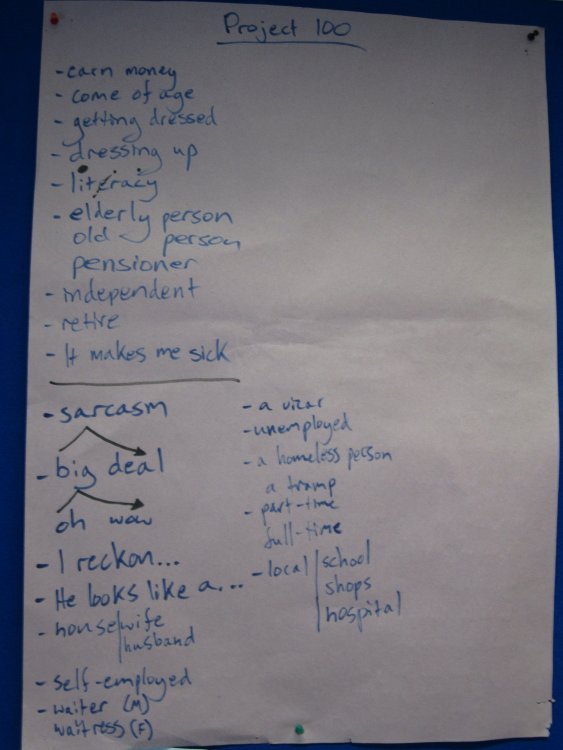 Project 100
- earn money
- come of age
- getting dressed
- dressing up
- literacy
- elderly person
old person
pensioner
- independent
- retire
- It makes me sick
- sarcasm
- big deal
oh wow
- I reckon...
- He looks like a...
- house|wife
|husband
- self-employed
- waiter (M)
waitress (F)
- a vicar
- unemployed
- a homeless person
a tramp
- part-time
full-time
- local | school
shops
hospital